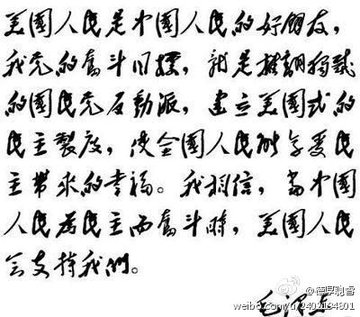 美國人民是中國人民的好朋友，
我党的奮斗目標，就是推翻獨裁
的國民党反動派，建立美國式的
民主製度，使全國人民能享受民
主帶来的幸福。我相信，當中國
人民為民主而奮斗時，美國人民
会支持我們。
毛泽东
weibo.com/u/2402134801